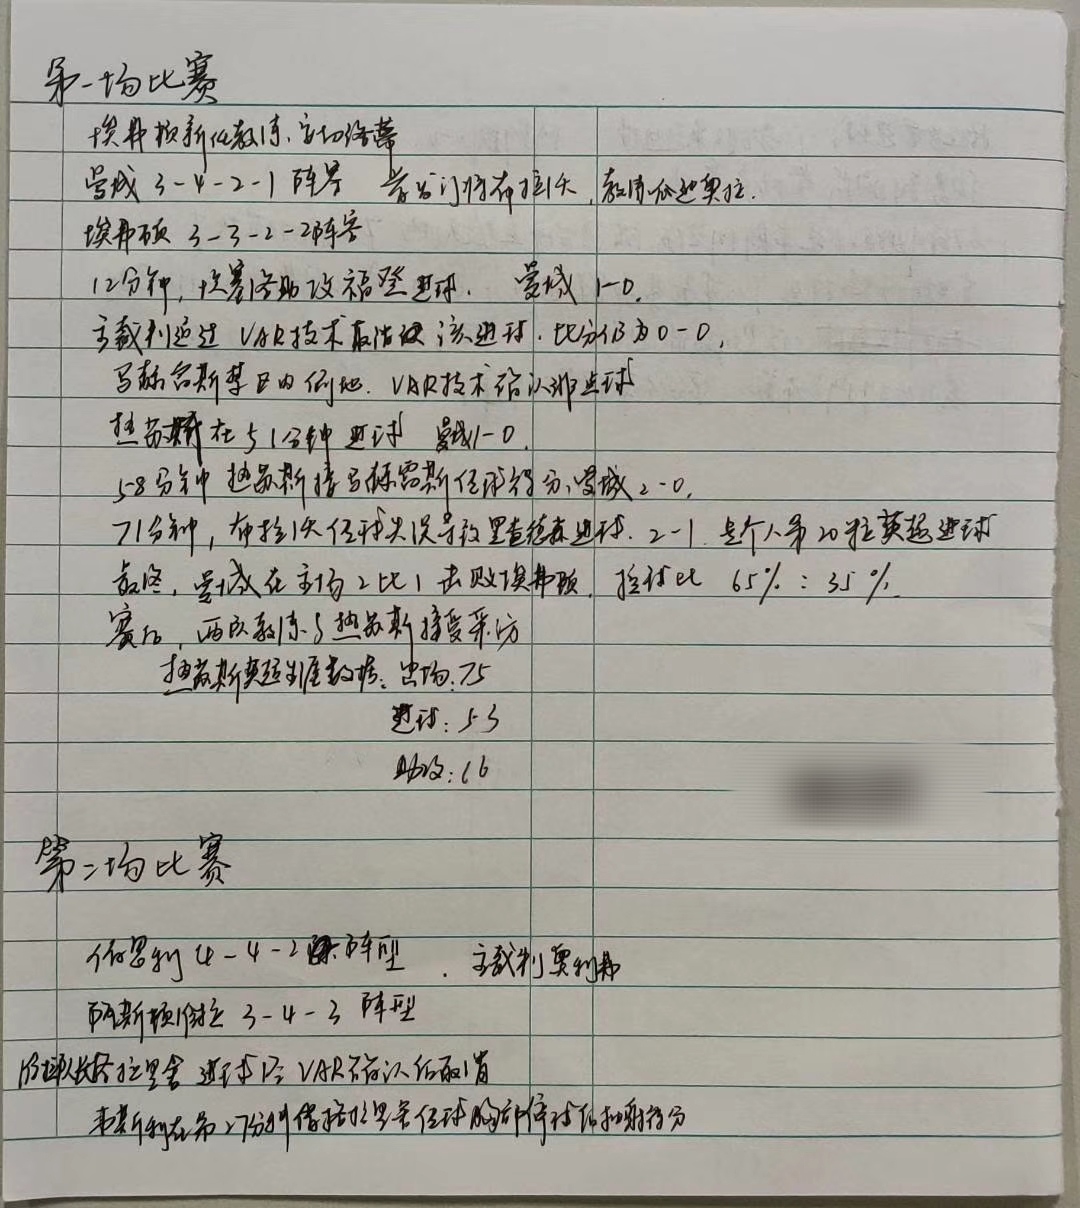 第一场比赛
埃弗顿新任教练:安切洛蒂
曼城 3-4-2-1 阵容 首发门将布拉沃,教练瓜迪奥拉.
埃弗顿 3-3-2-2阵容
12分钟,助攻福登进球. 曼城 1-0.
主裁判通过 VAR技术取消该进球.比分仍为0-0,
马赫雷斯禁区内倒地. VAR技术确认非点球
热苏斯在51分钟进球 曼城1-0.
58分钟 热苏斯接马赫雷斯传球得分,曼城2-0,
71分钟,布拉沃传球失误导致里查德森进球. 2-1. 是个人第20粒英超进球
最终,曼城在主场2比1击败埃弗顿. 控球比 65%:35%.
赛后,两队教练与热苏斯接受采访
热苏斯英超生涯数据:出场:75
进球:53
助攻:16
第二场比赛
伯恩利 4-4-2 阵型 . 主裁判奥利弗
阿斯顿维拉 3-4-3 阵型
格拉里舍 进球后 VAR确认后取消
韦斯利在第27分钟借格拉里舍传球胸部停球后抽射得分